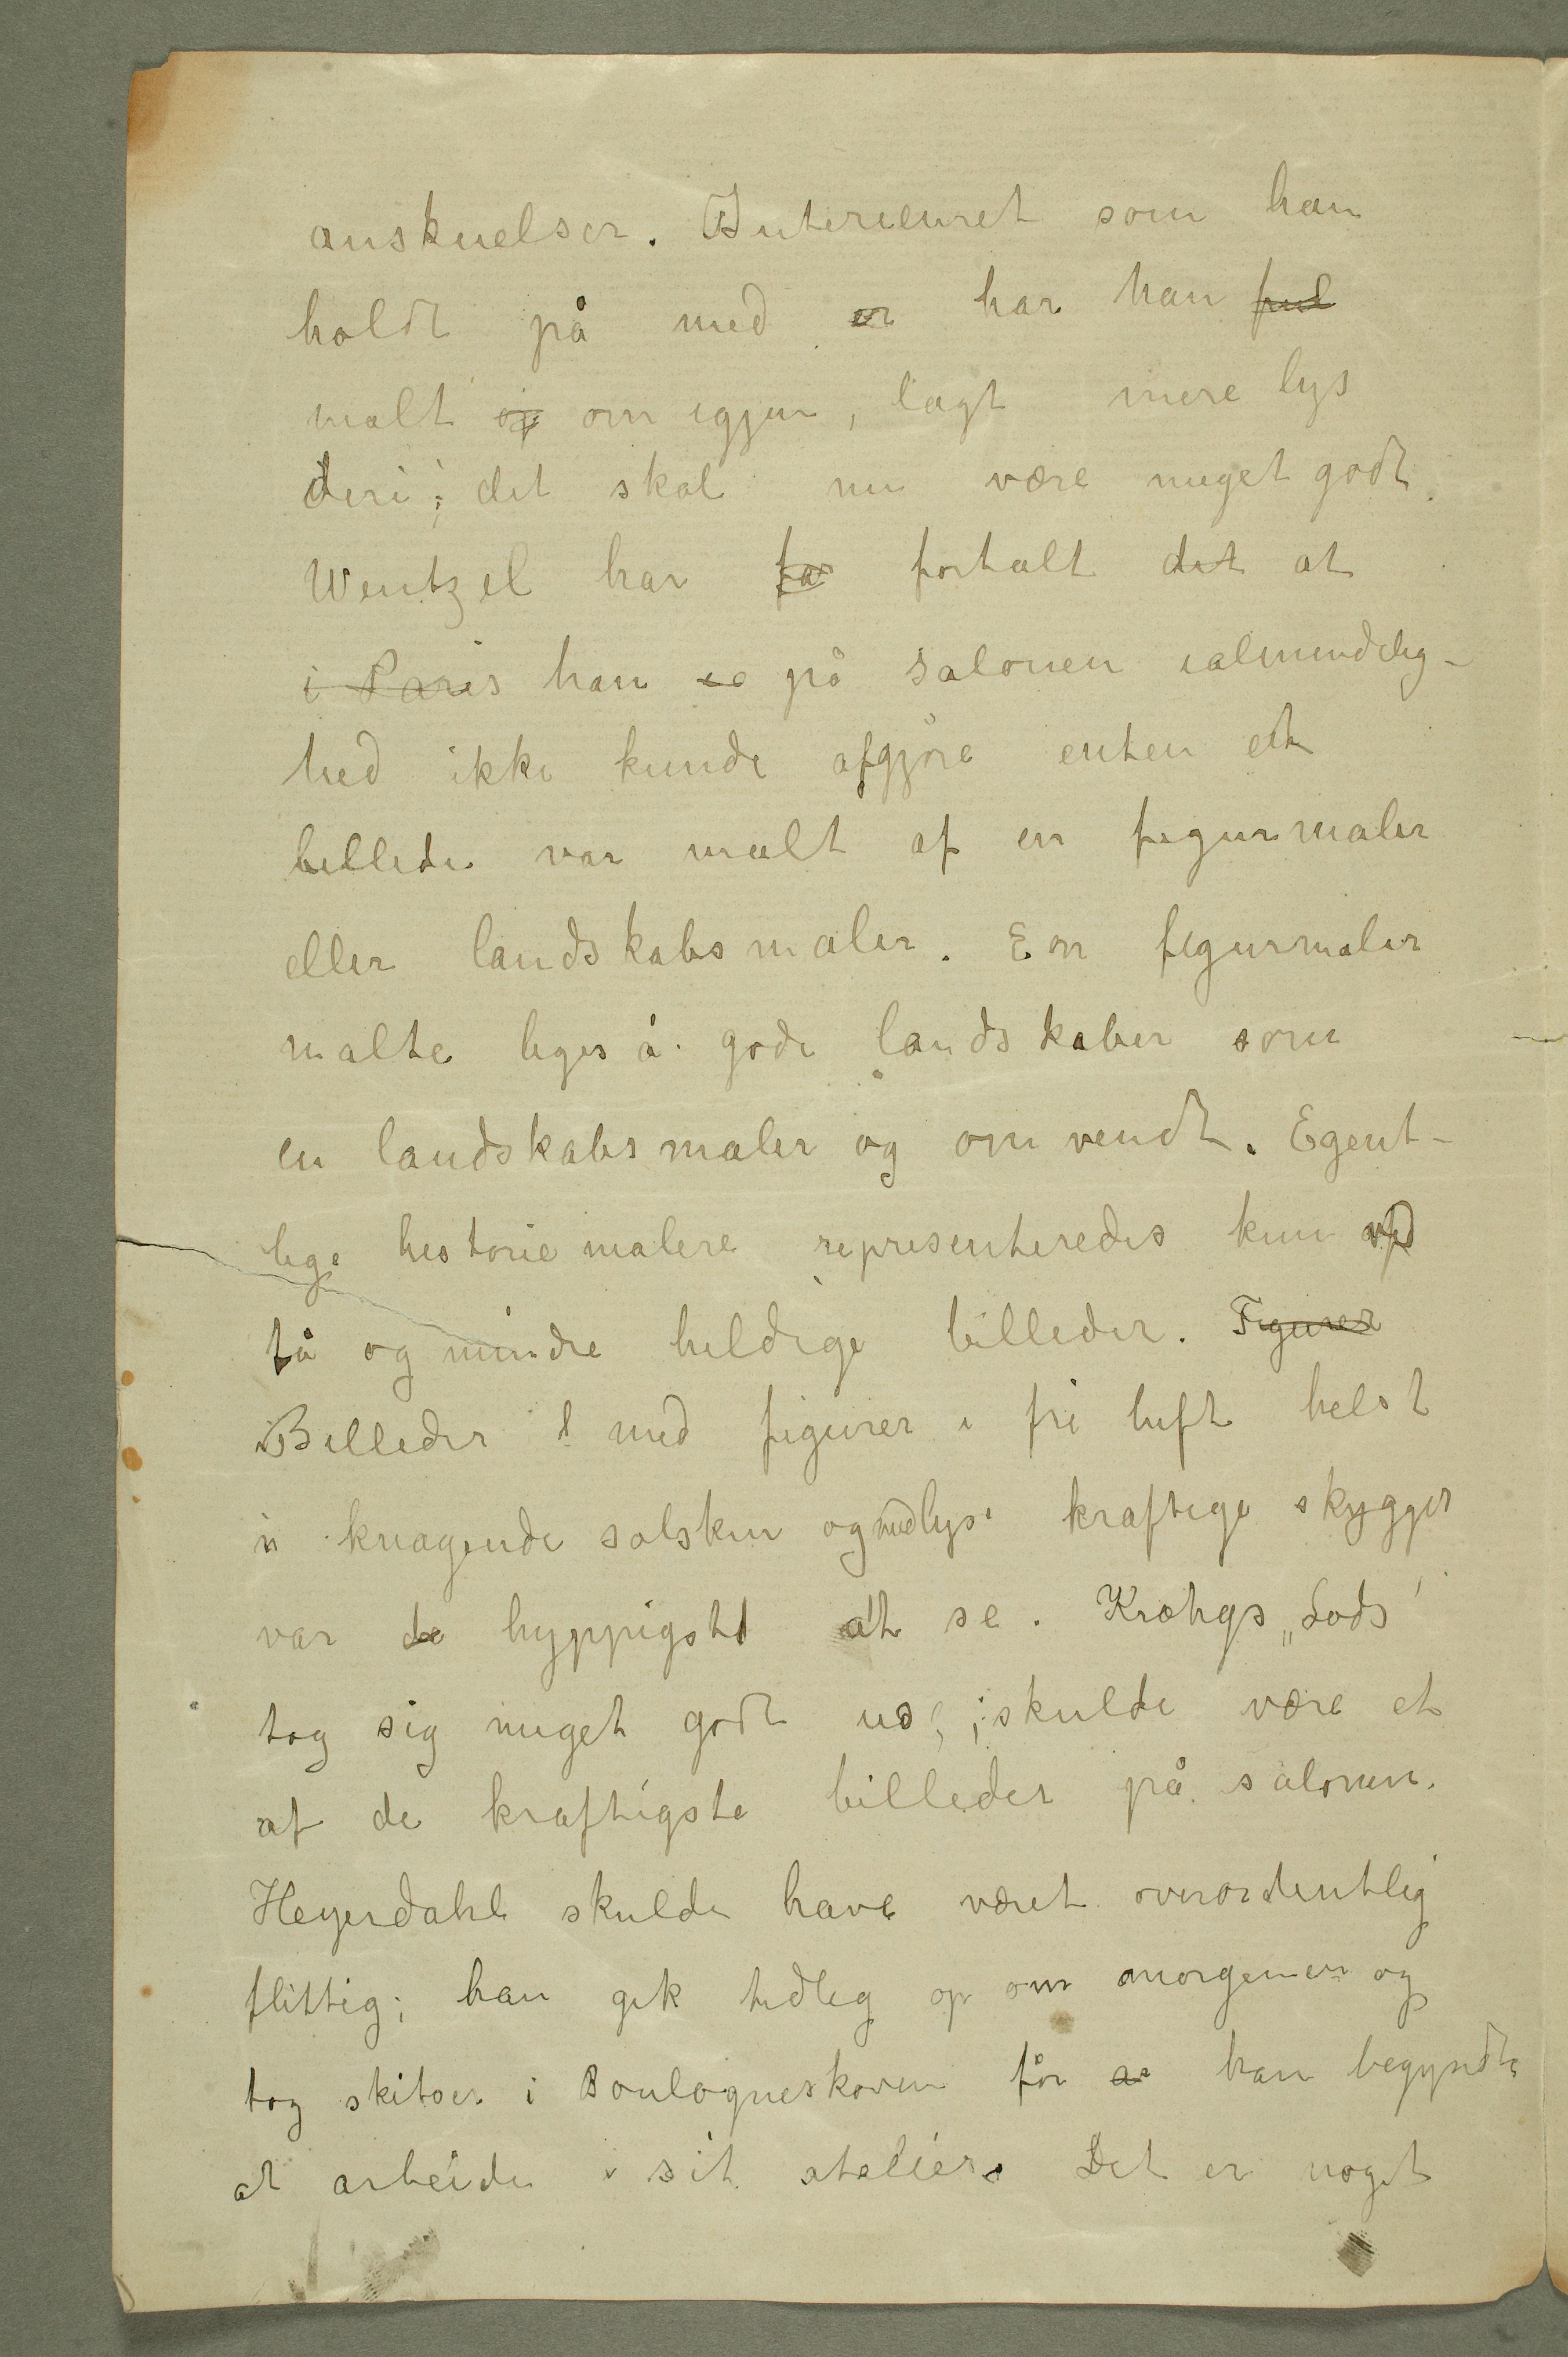 anskuelser. Interieuret som han
holdt på med er har han ful
malt op om igjen, lagt mere lys
deri; det skal nu være meget godt.
Wentzel har for fortalt det at
i Paris han se på salonen ialmindelig-
hed ikke kunde afgjøre enten et
billede var malt af en figurmaler
eller landskabsmaler. En figurmaler
malte ligeså gode landskaber som
en landskabsmaler og omvendt. Egent-
lige historiemalere representeredes kun ved
få og mindre heldige billeder. Figurer
Billeder med figurer i fri luft helst
i knagende solskin og med lyse kraftige skygger
var de hyppigste at se. Krohgs „Lods"
tog sig meget godt ud; skulde være et
af de kraftigste billeder på salonen.
Heyerdahl skulde have været overordentlig
flittig; han gik tidlig op om morgenen og
tog skitser i Boulogneskoven før han begyndte
at arbeide i sit atelier. Det er noget